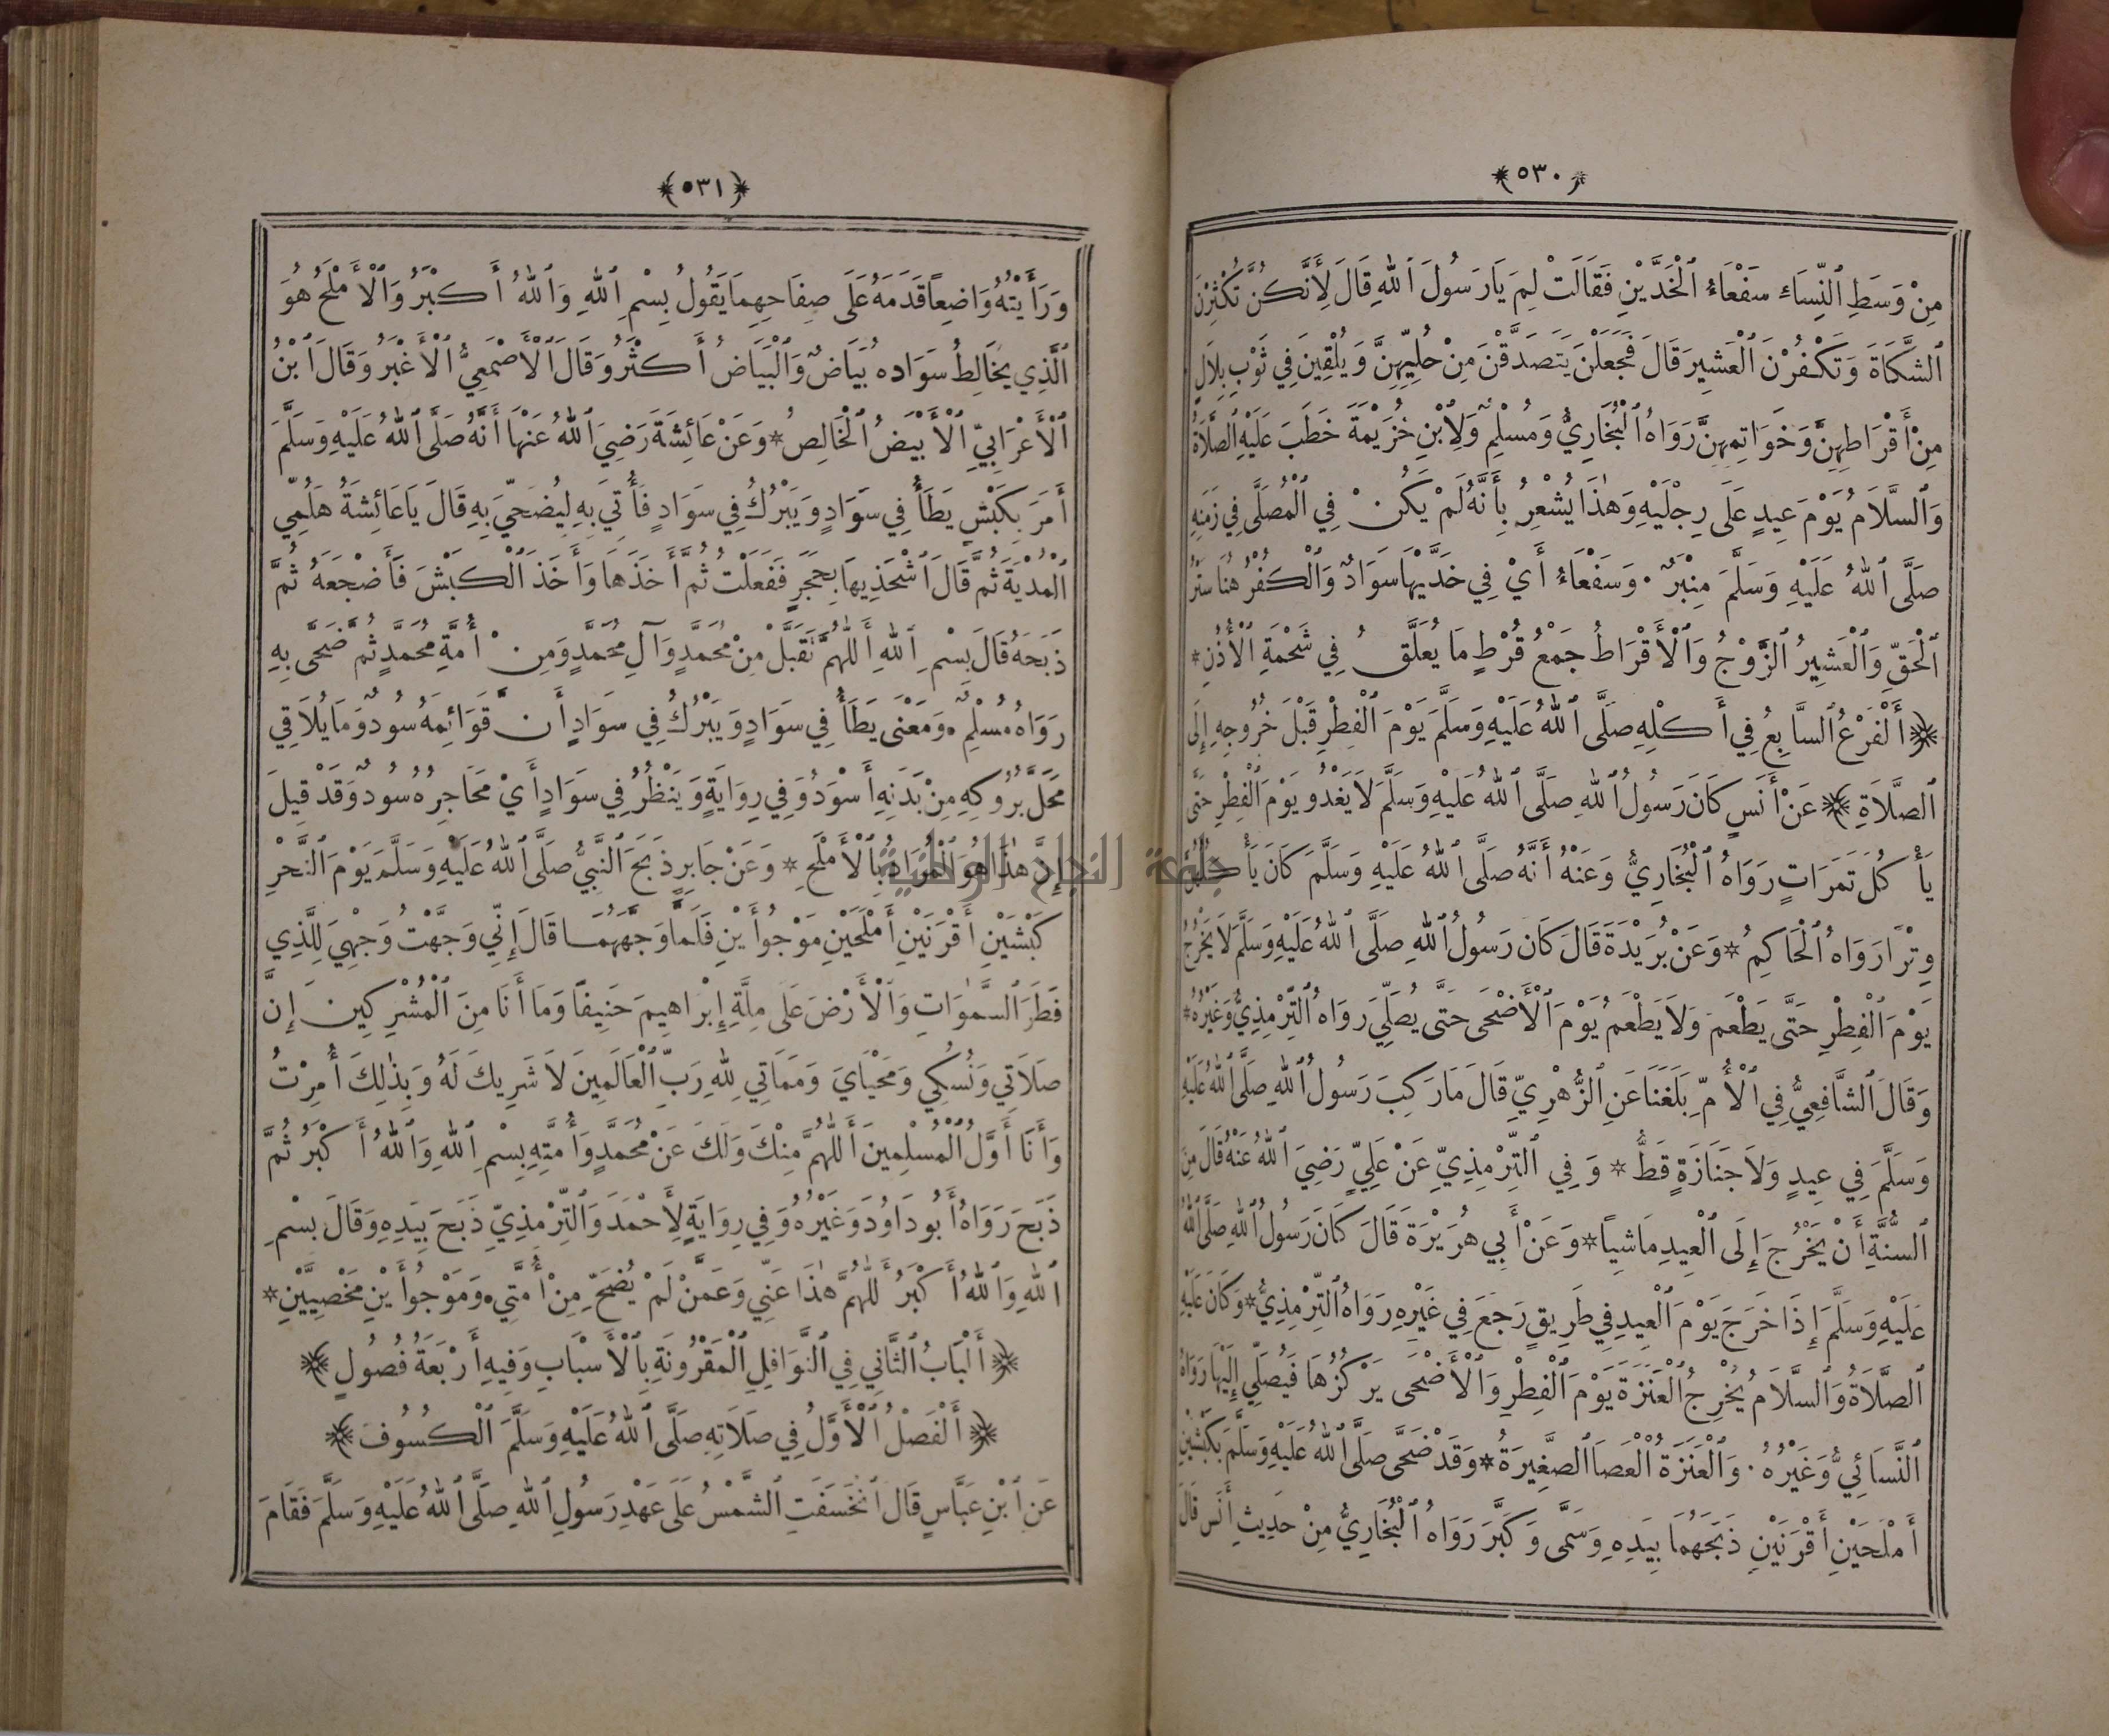 ﴿٥٣٠﴾
مِنْ وَسَطِ ٱلنِّسَاءِ سَفْعَاءُ ٱلْخَدَّيْنِ فَقَالَتْ لِمَ يَا رَسُولَ ٱللهِ قَالَ لِأَنَّكُنَّ تُكْثِرْنَ
ٱلشَّكَاةَ وَتَكْفُرْنَ ٱلْعَشِيرَ قَالَ فَجَعَلْنَ يَتَصَدَّقْنَ مِنْ حُلِيِّهِنَّ وَيُلْقِينَ فِي ثَوْبِ بِلَالٍ
مِنْ أَقْرَاطِهِنَّ وَخَوَاتِمِهِنَّ رَوَاهُ ٱلْبُخَارِيُّ وَمُسْلِمٌ وَلِٱبْنِ خُزَيْمَةَ خَطَبَ عَلَيْهِ ٱلصَّلَاةُ
وَٱلسَّلَامُ يَوْمَ عِيدٍ عَلَى رِجْلَيْهِ وَهٰذَا يُشْعِرُ بِأَنَّهُ لَمْ يَكُنْ فِي ٱلْمُصَلَّى فِي زَمَنِهِ
صَلَّى ٱللهُ عَلَيْهِ وَسَلَّمَ مِنْبَرٌ. وَسَفْعَاءُ أَيْ فِي خَدَّيْهَا سَوَادٌ وَٱلْكَفْرُ هُنَا سَتْرُ
ٱلْحَقِّ وَٱلْعَشِيرُ ٱلزَّوْجُ وَٱلْأَقْرَاطُ جَمْعُ قُرْطٍ مَا يُعَلَّقُ فِي شَحْمَةِ ٱلْأُذُنِ*
﴿أَلْفَرْعُ ٱلسَّابِعُ فِي أَكْلِهِ صَلَّى ٱللهُ عَلَيْهِ وَسَلَّمَ يَوْمَ ٱلْفِطْرِ قَبْلَ خُرُوجِهِ إِلَى
ٱلصَّلَاةِ﴾ عَنْ أَنَسٍ كَانَ رَسُولُ ٱللهِ صَلَّى ٱللهُ عَلَيْهِ وَسَلَّمَ لَا يَغْدُو يَوْمَ ٱلْفِطْرِ حَتَّى
يَأْكُلَ تَمَرَاتٍ رَوَاهُ ٱلْبُخَارِيُّ وَعَنْهُ أَنَّهُ صَلَّى ٱللهُ عَلَيْهِ وَسَلَّمَ كَانَ يَأْكُلُهُنَّ
وِتْرًا رَوَاهُ ٱلْحَاكِمُ * وَعَنْ بُرَيْدَةَ قَالَ كَانَ رَسُولُ ٱللهِ صَلَّى ٱللهُ عَلَيْهِ وَسَلَّمَ لَا يَخْرُجُ
يَوْمَ ٱلْفِطْرِ حَتَّى يَطْعَمَ وَلَا يَطْعَمُ يَوْمَ ٱلْأَضْحَى حَتَّى يُصَلِّيَ رَوَاهُ ٱلتِّرْمِذِيُّ وَغَيْرُهُ*
وَقَالَ ٱلشَّافِعِيُّ فِي ٱلْأُمِّ بَلَغَنَا عَنِ ٱلزُّهْرِيِّ قَالَ مَا رَكِبَ رَسُولُ ٱللهِ صَلَّى ٱللهُ عَلَيْهِ
وَسَلَّمَ فِي عِيدٍ وَلَا جَنَازَةٍ قَطُّ * وَفِي ٱلتِّرْمِذِيِّ عَنْ عَلِيٍّ رَضِيَ ٱللهُ عَنْهُ قَالَ مِنَ
ٱلسُّنَّةِ أَنْ يَخْرُجَ إِلَى ٱلْعِيدِ مَاشِيًا * وَعَنْ أَبِي هُرَيْرَةَ قَالَ كَانَ رَسُولُ ٱللهِ صَلَّى ٱللهُ
عَلَيْهِ وَسَلَّمَ إِذَا خَرَجَ يَوْمَ ٱلْعِيدِ فِي طَرِيقٍ رَجَعَ فِي غَيْرِهِ رَوَاهُ ٱلتِّرْمِذِيُّ * وَكَانَ عَلَيْهِ
ٱلصَّلَاةُ وَٱلسَّلَامُ يُخْرِجُ ٱلْعَنَزَةَ يَوْمَ ٱلْفِطْرِ وَٱلْأَضْحَى يَرْكُزُهَا فَيُصَلِّي إِلَيْهَا رَوَاهُ
ٱلنَّسَائِيُّ وَغَيْرُهُ. وَٱلْعَنَزَةُ ٱلْعَصَا ٱلصَّغِيرَةُ * وَقَدْ ضَحَّى صَلَّى ٱللهُ عَلَيْهِ وَسَلَّمَ بِكَبْشَيْنِ
أَمْلَحَيْنِ أَقْرَنَيْنِ ذَبَحَهُمَا بِيَدِهِ وَسَمَّى وَكَبَّرَ رَوَاهُ ٱلْبُخَارِيُّ مِنْ حَدِيثِ أَنَسٍ قَالَ
﴿٥٣١﴾
وَرَأَيْتُهُ وَاضِعًا قَدَمَهُ عَلَى صِفَاحِهِمَا يَقُولُ بِسْمِ ٱللهِ وَٱللهُ أَكْبَرُ وَٱلْأَمْلَحُ هُوَ
ٱلَّذِي يُخَالِطُ سَوَادَهُ بَيَاضٌ وَٱلْبَيَاضُ أَكْثَرُ وَقَالَ ٱلْأَصْمَعِيُّ ٱلْأَغْبَرُ وَقَالَ ٱبْنُ
ٱلْأَعْرَابِيِّ ٱلْأَبْيَضُ ٱلْخَالِصُ * وَعَنْ عَائِشَةَ رَضِيَ ٱللهُ عَنْهَا أَنَّهُ صَلَّى ٱللهُ عَلَيْهِ وَسَلَّمَ
أَمَرَ بِكَبْشٍ يَطَأُ فِي سَوَادٍ وَيَبْرُكُ فِي سَوَادٍ فَأُتِيَ بِهِ لِيُضَحِّيَ بِهِ قَالَ يَا عَائِشَةُ هَلُمِّي
ٱلْمُدْيَةَ ثُمَّ قَالَ ٱشْحَذِيهَا بِحَجَرٍ فَفَعَلَتْ ثُمَّ أَخَذَهَا وَأَخَذَ ٱلْكَبْشَ فَأَضْجَعَهُ ثُمَّ
ذَبَحَهُ قَالَ بِسْمِ ٱللهِ أَللّٰهُمَّ تَقَبَّلْ مِنْ مُحَمَّدٍ وَآلِ مُحَمَّدٍ وَمِنْ أُمَّةِ مُحَمَّدٍ ثُمَّ ضَحَّى بِهِ
رَوَاهُ مُسْلِمٌ. وَمَعْنَى يَطَأُ فِي سَوَادٍ وَيَبْرُكُ فِي سَوَادٍ أَنَّ قَوَائِمَهُ سُودٌ وَمَا يُلَاقِي
مَحَلَّ بُرُوكِهِ مِنْ بَدَنِهِ أَسْوَدُ وَفِي رِوَايَةٍ وَيَنْظُرُ فِي سَوَادٍ أَيْ مَحَاجِرُهُ سُودٌ وَقَدْ قِيلَ
إِنَّ هٰذَا هُوَ ٱلْمُرَادُ بِٱلْأَمْلَحِ * وَعَنْ جَابِرٍ ذَبَحَ ٱلنَّبِيُّ صَلَّى ٱللهُ عَلَيْهِ وَسَلَّمَ يَوْمَ ٱلنَّحْرِ
كَبْشَيْنِ أَقْرَنَيْنِ أَمْلَحَيْنِ مَوْجُوأَيْنِ فَلَمَّا وَجَّهَهُمَا قَالَ إِنِّي وَجَّهْتُ وَجْهِيَ لِلَّذِي
فَطَرَ ٱلسَّمٰوَاتِ وَٱلْأَرْضَ عَلَى مِلَّةِ إِبْرَاهِيمَ حَنِيفًا وَمَا أَنَا مِنَ ٱلْمُشْرِكِينَ إِنَّ
صَلَاتِي وَنُسُكِي وَمَحْيَايَ وَمَمَاتِي لِلهِ رَبِّ ٱلْعَالَمِينَ لَا شَرِيكَ لَهُ وَبِذٰلِكَ أُمِرْتُ
وَأَنَا أَوَّلُ ٱلْمُسْلِمِينَ أَللّٰهُمَّ مِنْكَ وَلَكَ عَنْ مُحَمَّدٍ وَأُمَّتِهِ بِسْمِ ٱللهِ وَٱللهُ أَكْبَرُ ثُمَّ
ذَبَحَ رَوَاهُ أَبُو دَاوُدَ وَغَيْرُهُ وَفِي رِوَايَةٍ لِأَحْمَدَ وَٱلتِّرْمِذِيِّ ذَبَحَ بِيَدِهِ وَقَالَ بِسْمِ
ٱللهِ وَٱللهُ أَكْبَرُ أَللّٰهُمَّ هٰذَا عَنِّي وَعَمَّنْ لَمْ يُضَحِّ مِنْ أُمَّتِي. وَمَوْجُوأَيْنِ مَخْصِيَّيْنِ*
﴿أَلْبَابُ ٱلثَّانِي فِي ٱلنَّوَافِلِ ٱلْمَقْرُونَةِ بِٱلْأَسْبَابِ وَفِيهِ أَرْبَعَةُ فُصُولٍ﴾
﴿أَلْفَصْلُ ٱلْأَوَّلُ فِي صَلَاتِهِ صَلَّى ٱللهُ عَلَيْهِ وَسَلَّمَ ٱلْكُسُوفَ﴾
عَنِ ٱبْنِ عَبَّاسٍ قَالَ ٱنْخَسَفَتِ ٱلشَّمْسُ عَلَى عَهْدِ رَسُولِ ٱللهِ صَلَّى ٱللهُ عَلَيْهِ وَسَلَّمَ فَقَامَ
جامعة النجاح الوطنية